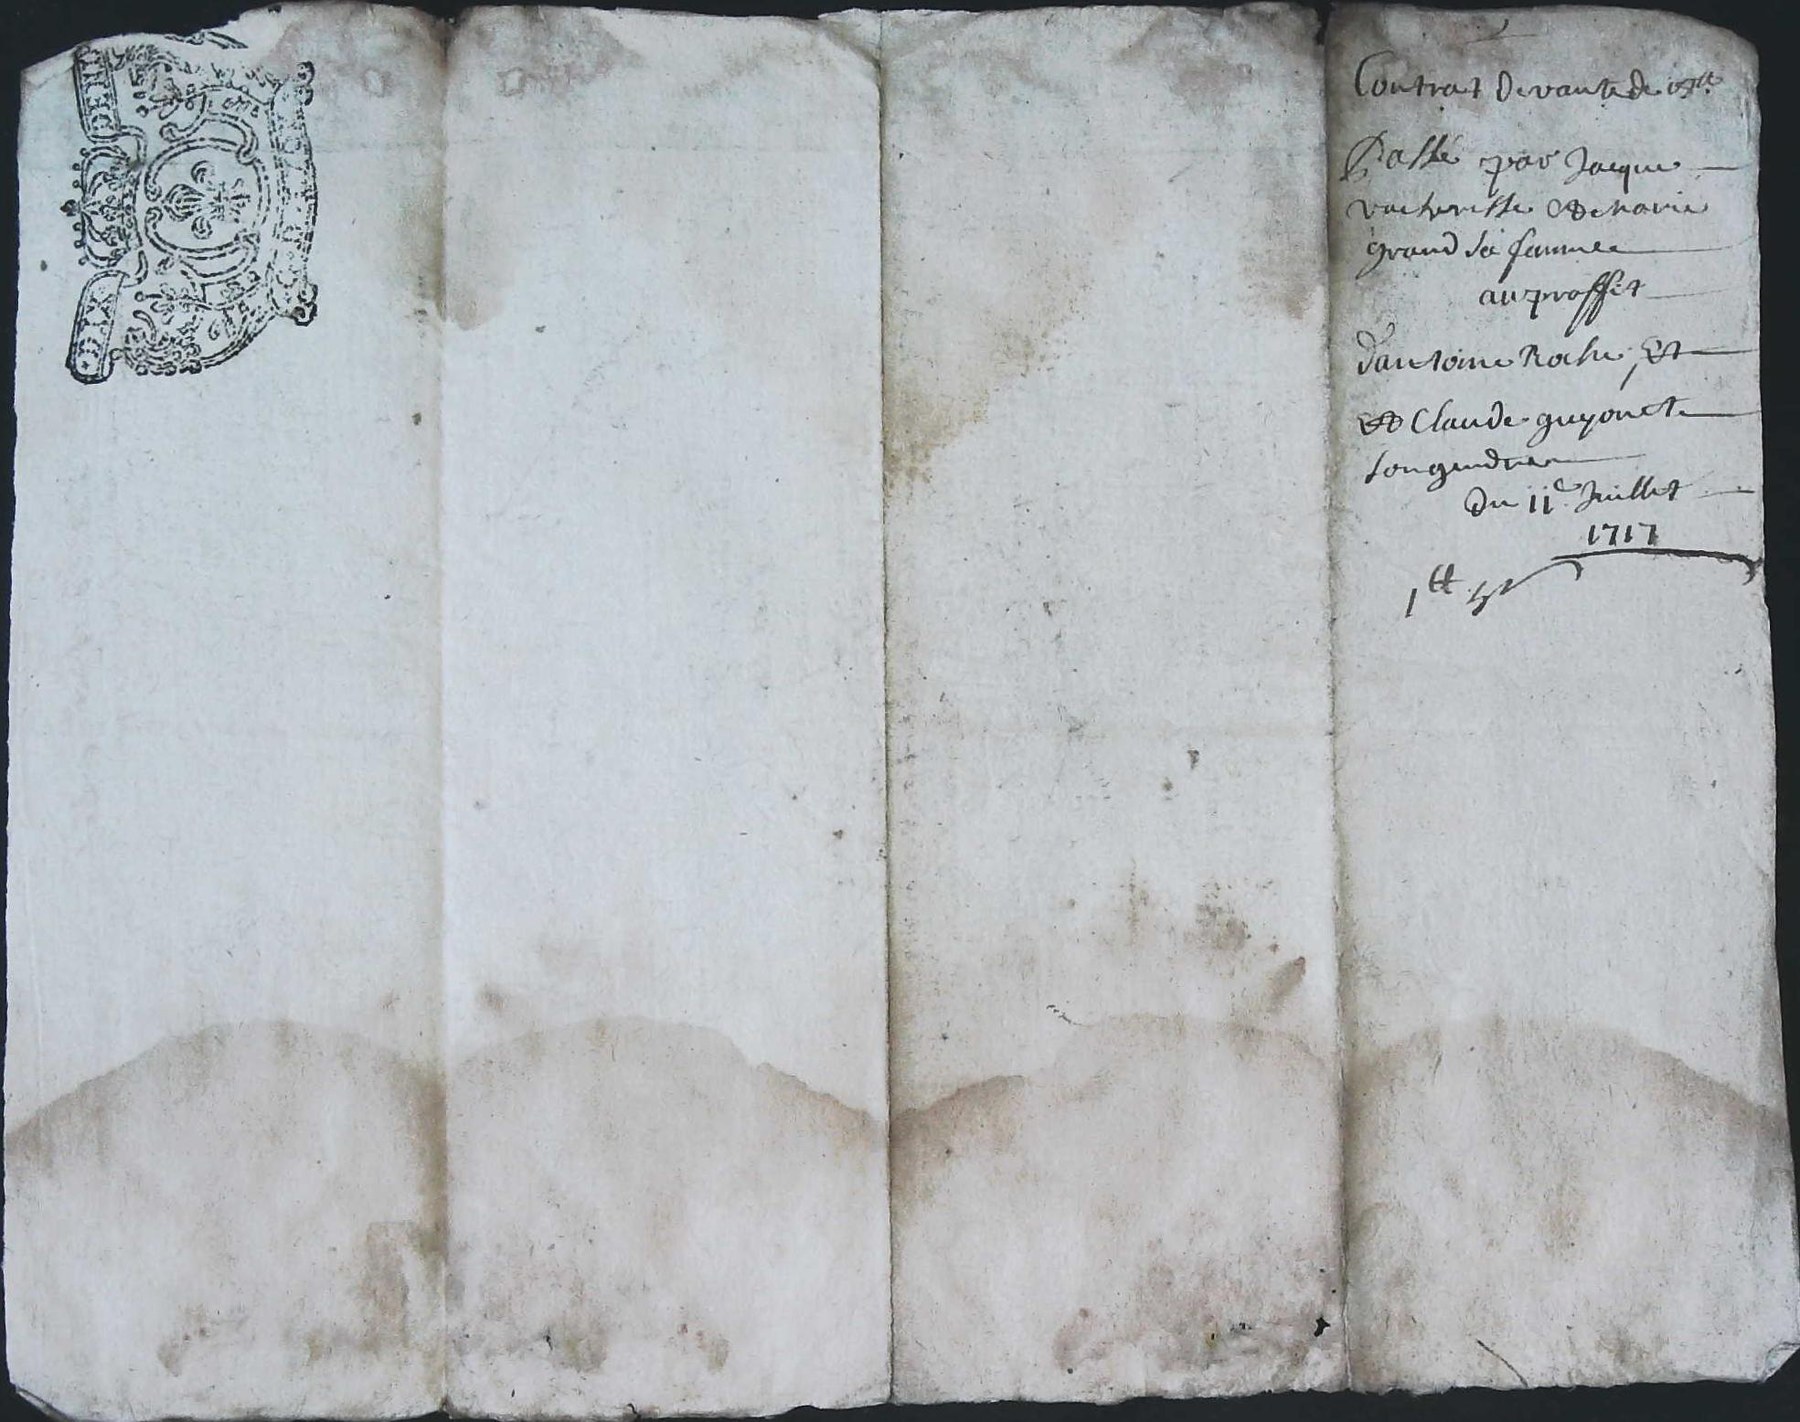 SIX DENIE
Contrat de vante de
Passé par Jacque
vacheresse Et marie
grand sa famme
au proffit
d'antoine Roche, Et
Et Claude guyonet
son gendre
Du 11e Juillet
1717
1tt